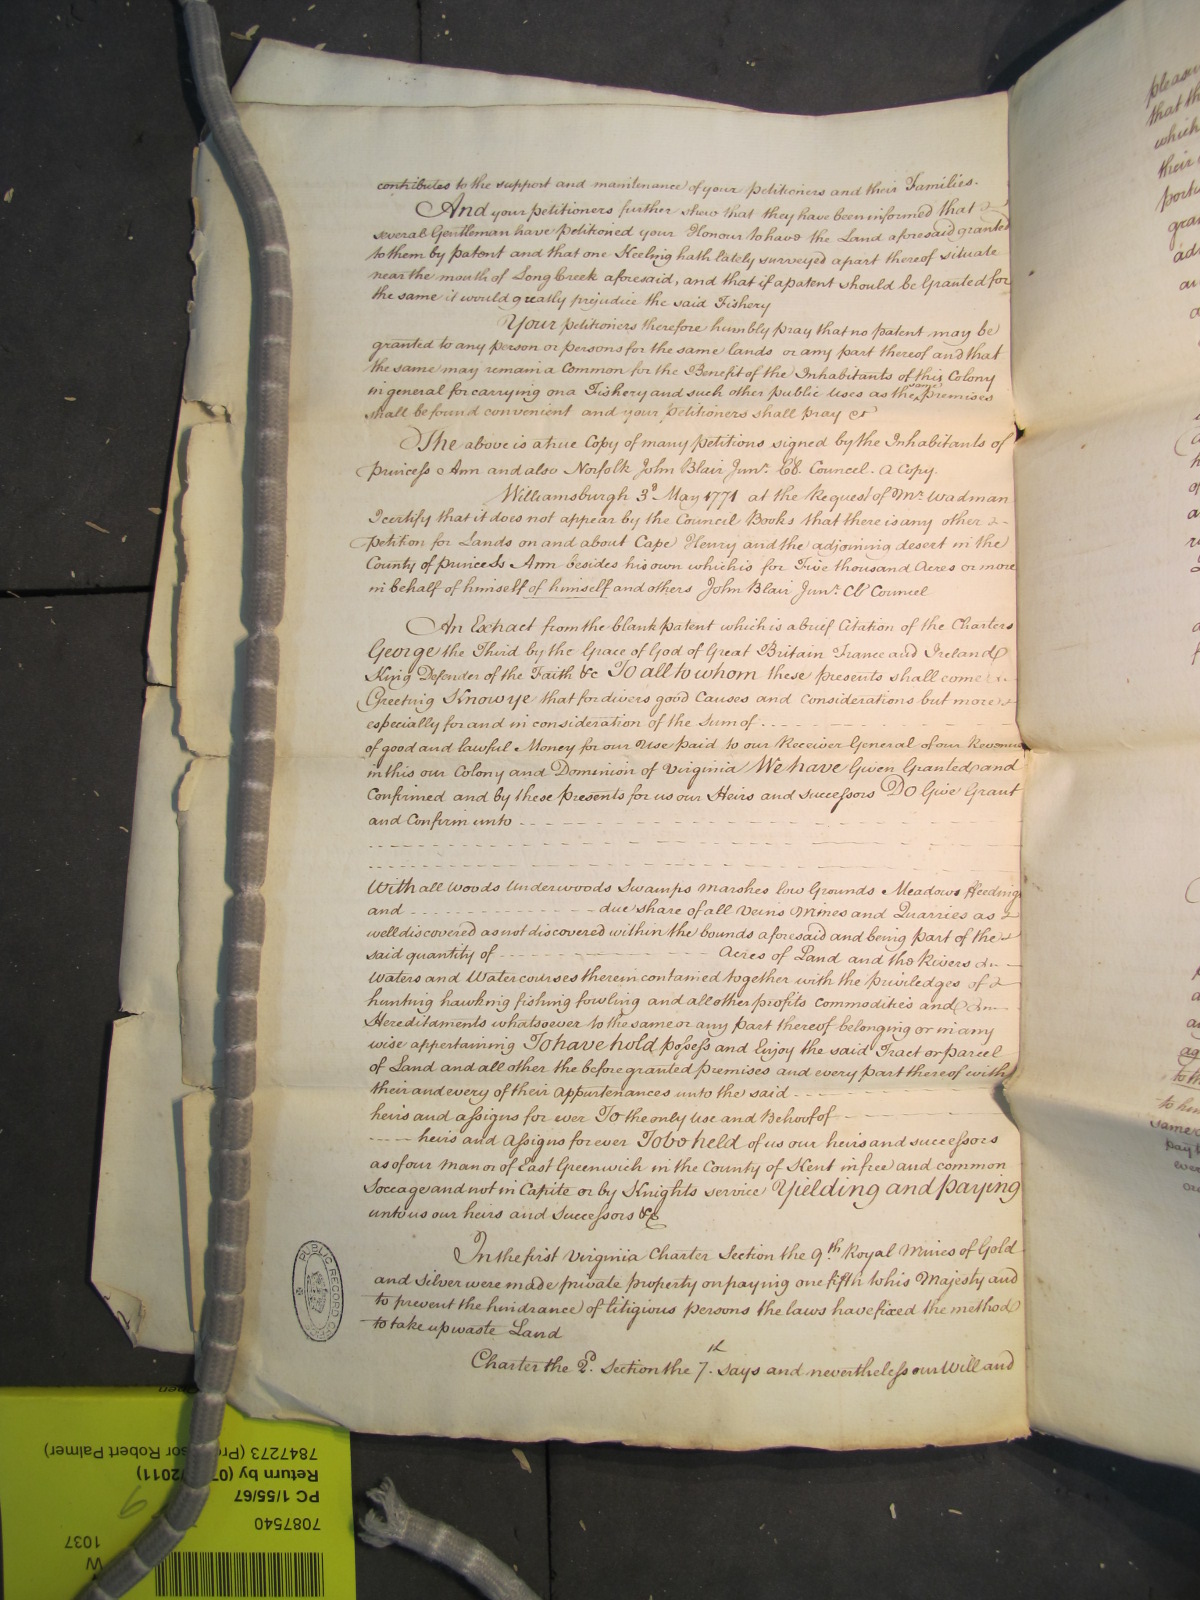 contributes to the support and maintenance of your Petitioners and their Families.
And your petitioners further shew that they have been informed that
several Gentleman have petitioned your Honour to have the Land aforesaid granted
to them by patent and that one Keeling hath lately surveyed apart thereof situate
near the mouth of Long Creek aforesaid, and that if a patent should be Granted for
the same it would greatly prejudice the said Fishery
Your petitioners therefore humbly pray that no patent may be
granted to any person or persons for the same lands or any part thereof and that
the same may remain a Common for the Benefit of the Inhabitants of this Colony
in general for carrying on a Fishery and such other public Uses as the same premises
shall be found convenient and your petitioners shall pray &c
The above is a true Copy of many petitions signed by the Inhabitants of
Princess Ann and also Norfolk John Blair Junr. Cl. Council. a Copy.
Williamsburgh 3d May 1771 at the Request of Mr. Wadman
I certify that it does not appear by the Council Books that there is any other
petition for Lands on and about Cape Henry and the adjoining desert in the
County of Princess Ann besides his own which is for Five thousand Acres or more
in behalf of himself of himself and others John Blair Junr. Cl Council
An Extract from the blank patent which is a brief Citation of the Charters
George the Third by the Grace of God of Great Britain France and Ireland
King Defender of the Faith &c To all to whom these presents shall come
Greeting Know ye that for divers good Causes and Considerations but more
especially for and in consideration of the Sum of
of good and lawful Money for our Use paid to our Receiver General of our Revenue
in this our Colony and Dominion of Virginia We have Given Granted and
Confirmed and by these Presents for us our Heirs and successors Do Give Grant
and Confirm unto
With all Woods Underwoods Swamps Marshes low Grounds Meadows Feedings
and due share of all Veins Mines and Quarries as
well discovered as not discovered within the bounds aforesaid and being part of the
said quantity of Acres of Land and the Rivers
Waters and Watercourses therein contained together with the priviledges of
hunting hawking fishing fowling and all other profits Commodities and
Hereditaments whatsoever to the same or any part thereof belonging or in any
wise appertaining To have hold possess and Enjoy the said Tract or parcel
of Land and all other the before granted premises and every part thereof with
their and every of their appurtenances unto the said
heirs and assigns for ever To the only Use and Behoof of
heirs and Assigns for ever To be held of us our heirs and successors
as of our Manor of East Greenwich in the County of Kent in free and common
Soccage and not in Capite or by Knights service Yielding and paying
unto us our heirs and Successors &c
In the first Virginia Charter Section the 9th. Royal Mines of Gold
and Silver were made private property on paying one fifth to his Majesty and
to prevent the hindrance of litigious persons the laws have fixed the method
to take up waste Land
Charter the 2d. Section the 7th. says and nevertheless our Will and
PUBLIC RECORD OFFICE
7847273 (Professor Robert Palmer)
Return by
PC 1/55/67
9
7087540
1037
W